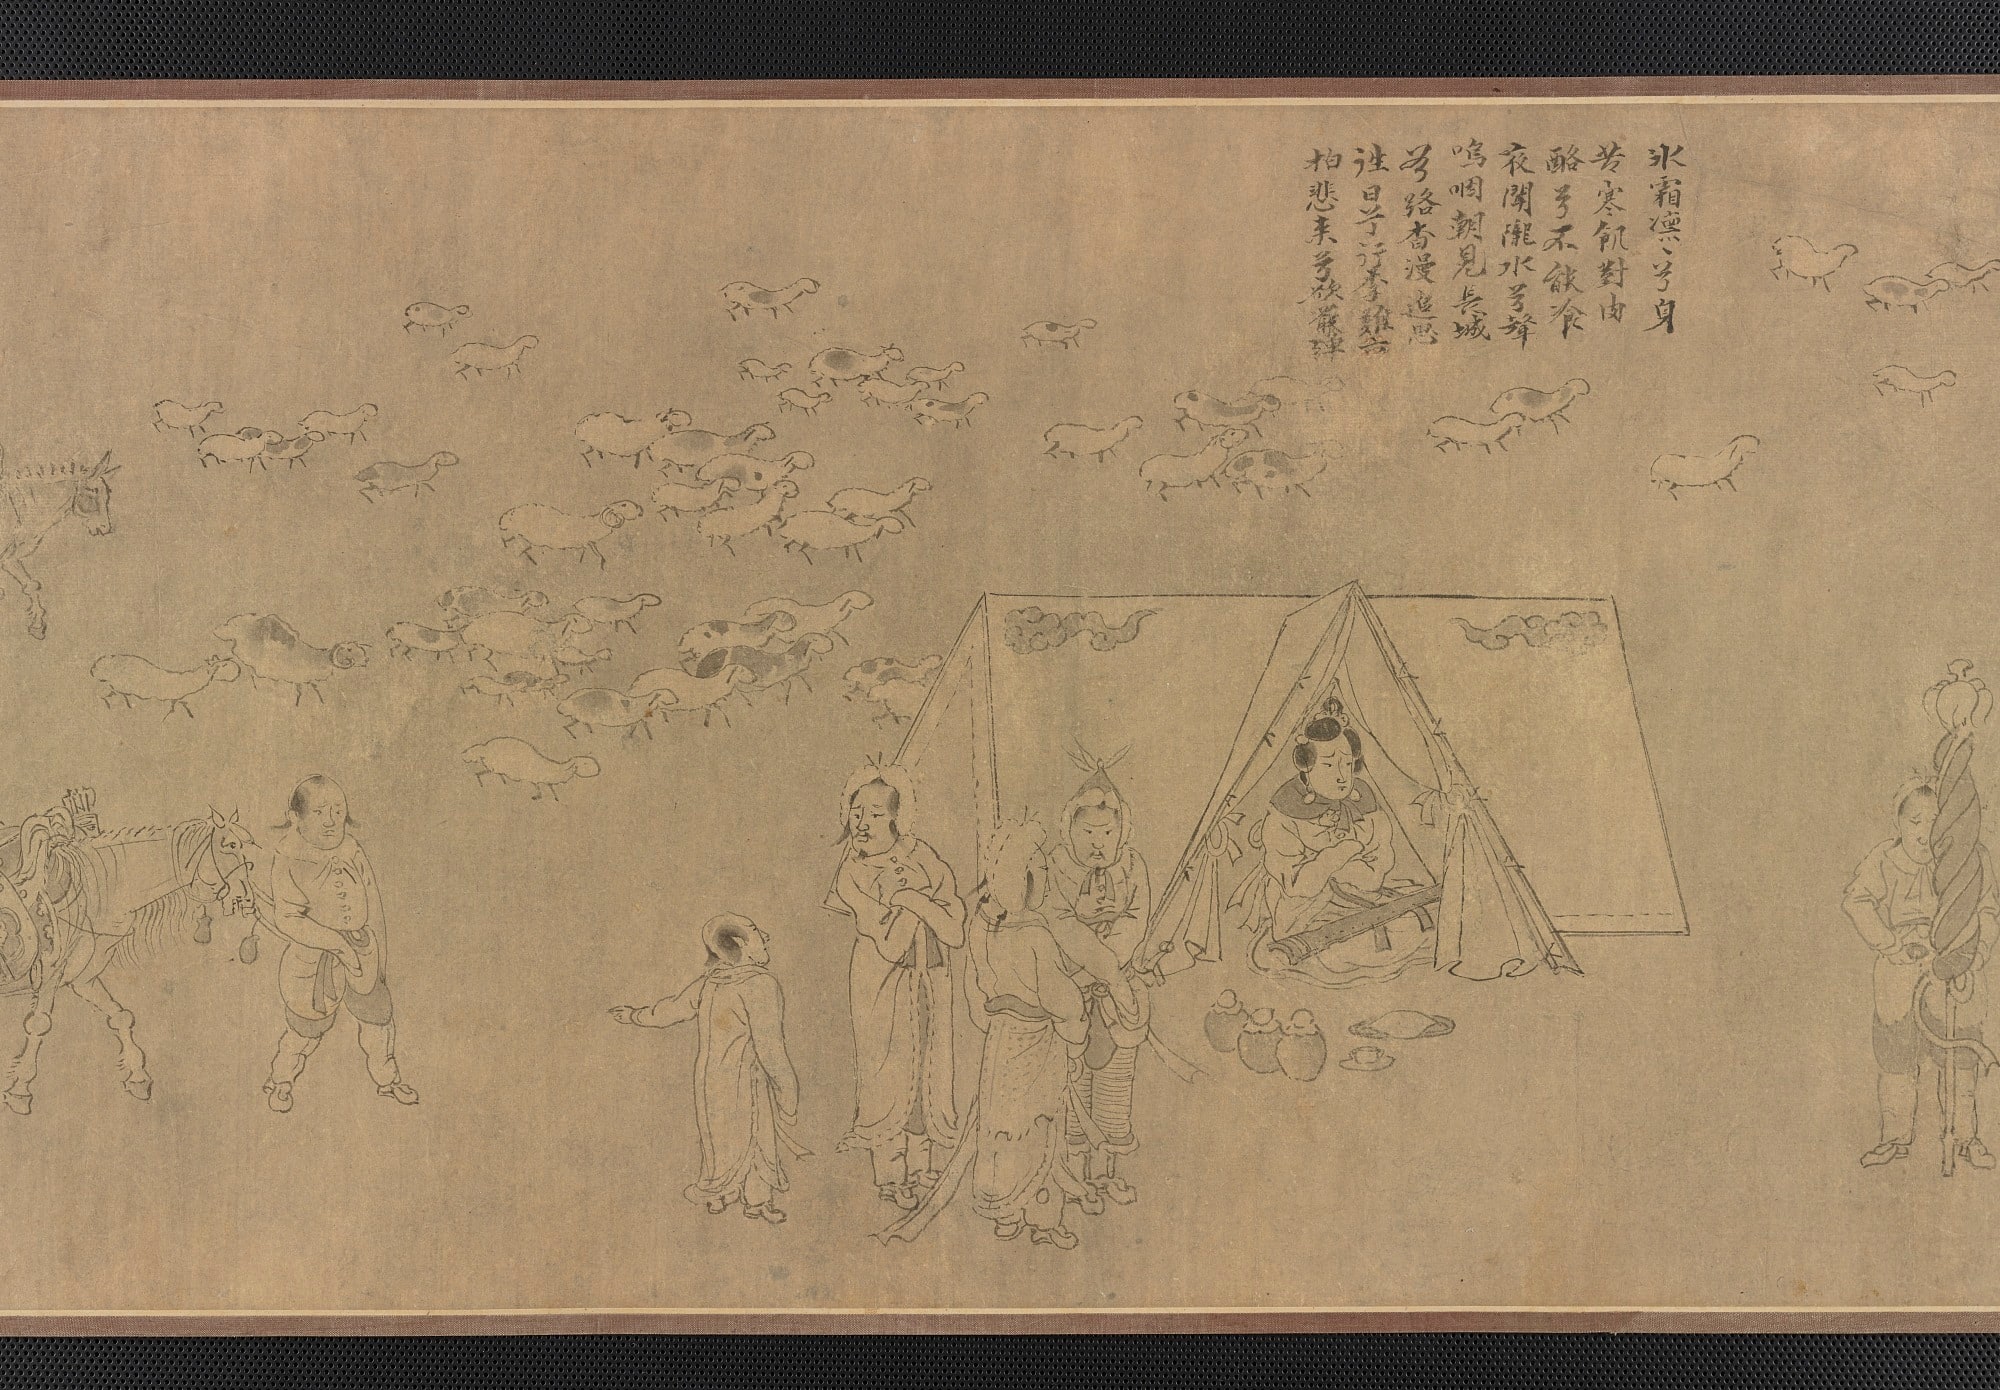 氷霜凛〻兮身
苦寒飢對肉
酪兮不能飡
夜聞隴水兮聲
嗚咽朝見長城
兮路杳漫追思
徃日兮行李難六
拍悲来兮欲罷彈